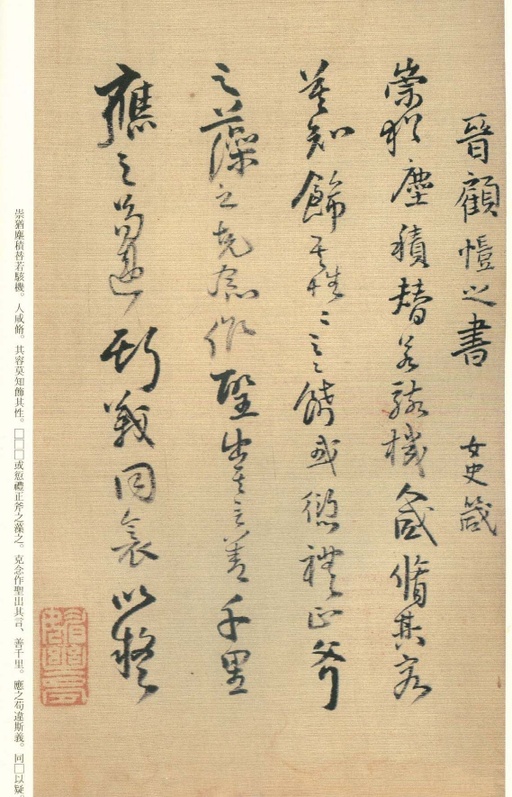 晉顧愷之書 女史箴
崇猶塵積替若駭機人咸脩其容
莫知飾其性性之不飾或愆禮正斧
之藻之克念作聖出其言善千里
應之苟違斯義同衾以疑
崇猶塵積替若駭機。人咸脩。其容莫知飾其性。□□□或愆禮正斧之藻之。克念作聖出其言、善千里。應之苟違斯義。同□以疑。